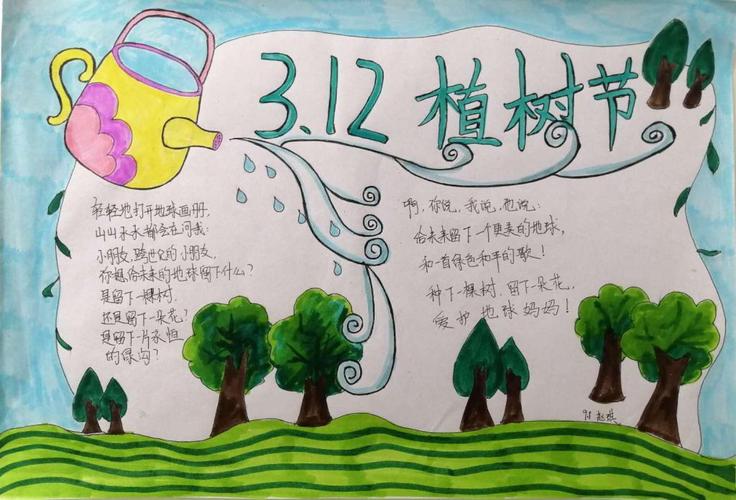 3.12 植树节
轻轻地打开地球画册,
山山水水都会在问我:
小朋友,跨世纪的小朋友,
你想给未来的地球留下什么?
是留下一棵树,
还是留下一朵花?
是留下一片永恒
的绿岛?
啊,你说,我说,他说:
给未来留下一个更美的地球,
和一首绿色和平的歌!
种下一棵树,留下一朵花,
爱护地球妈妈!